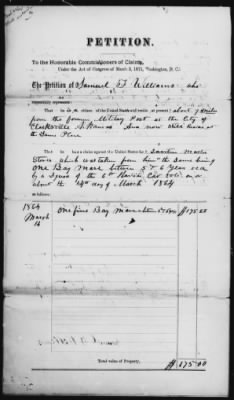 PETITION.
To the Honorable Commissioners of Claims,
Under the Act of Congress of March 3, 1871, Washington, D. C.:
The Petition of Samuel F. Williams who
respectfully represents:
That he is a citizen of the United States and resides at present about 7 miles
from the former Military Post at the City of
Clarksville Arkansas
the Same Place
That he has a claim against the United States for
Stores which was taken from him the Same being
One Bay Mare between 5 & 6 Year old
by a of the 6th Cav Vols on or
about the 14th day of March 1864
as follows:
1864
March
14
One fine Bay Mare $175 00
Total value of Property, $175.00